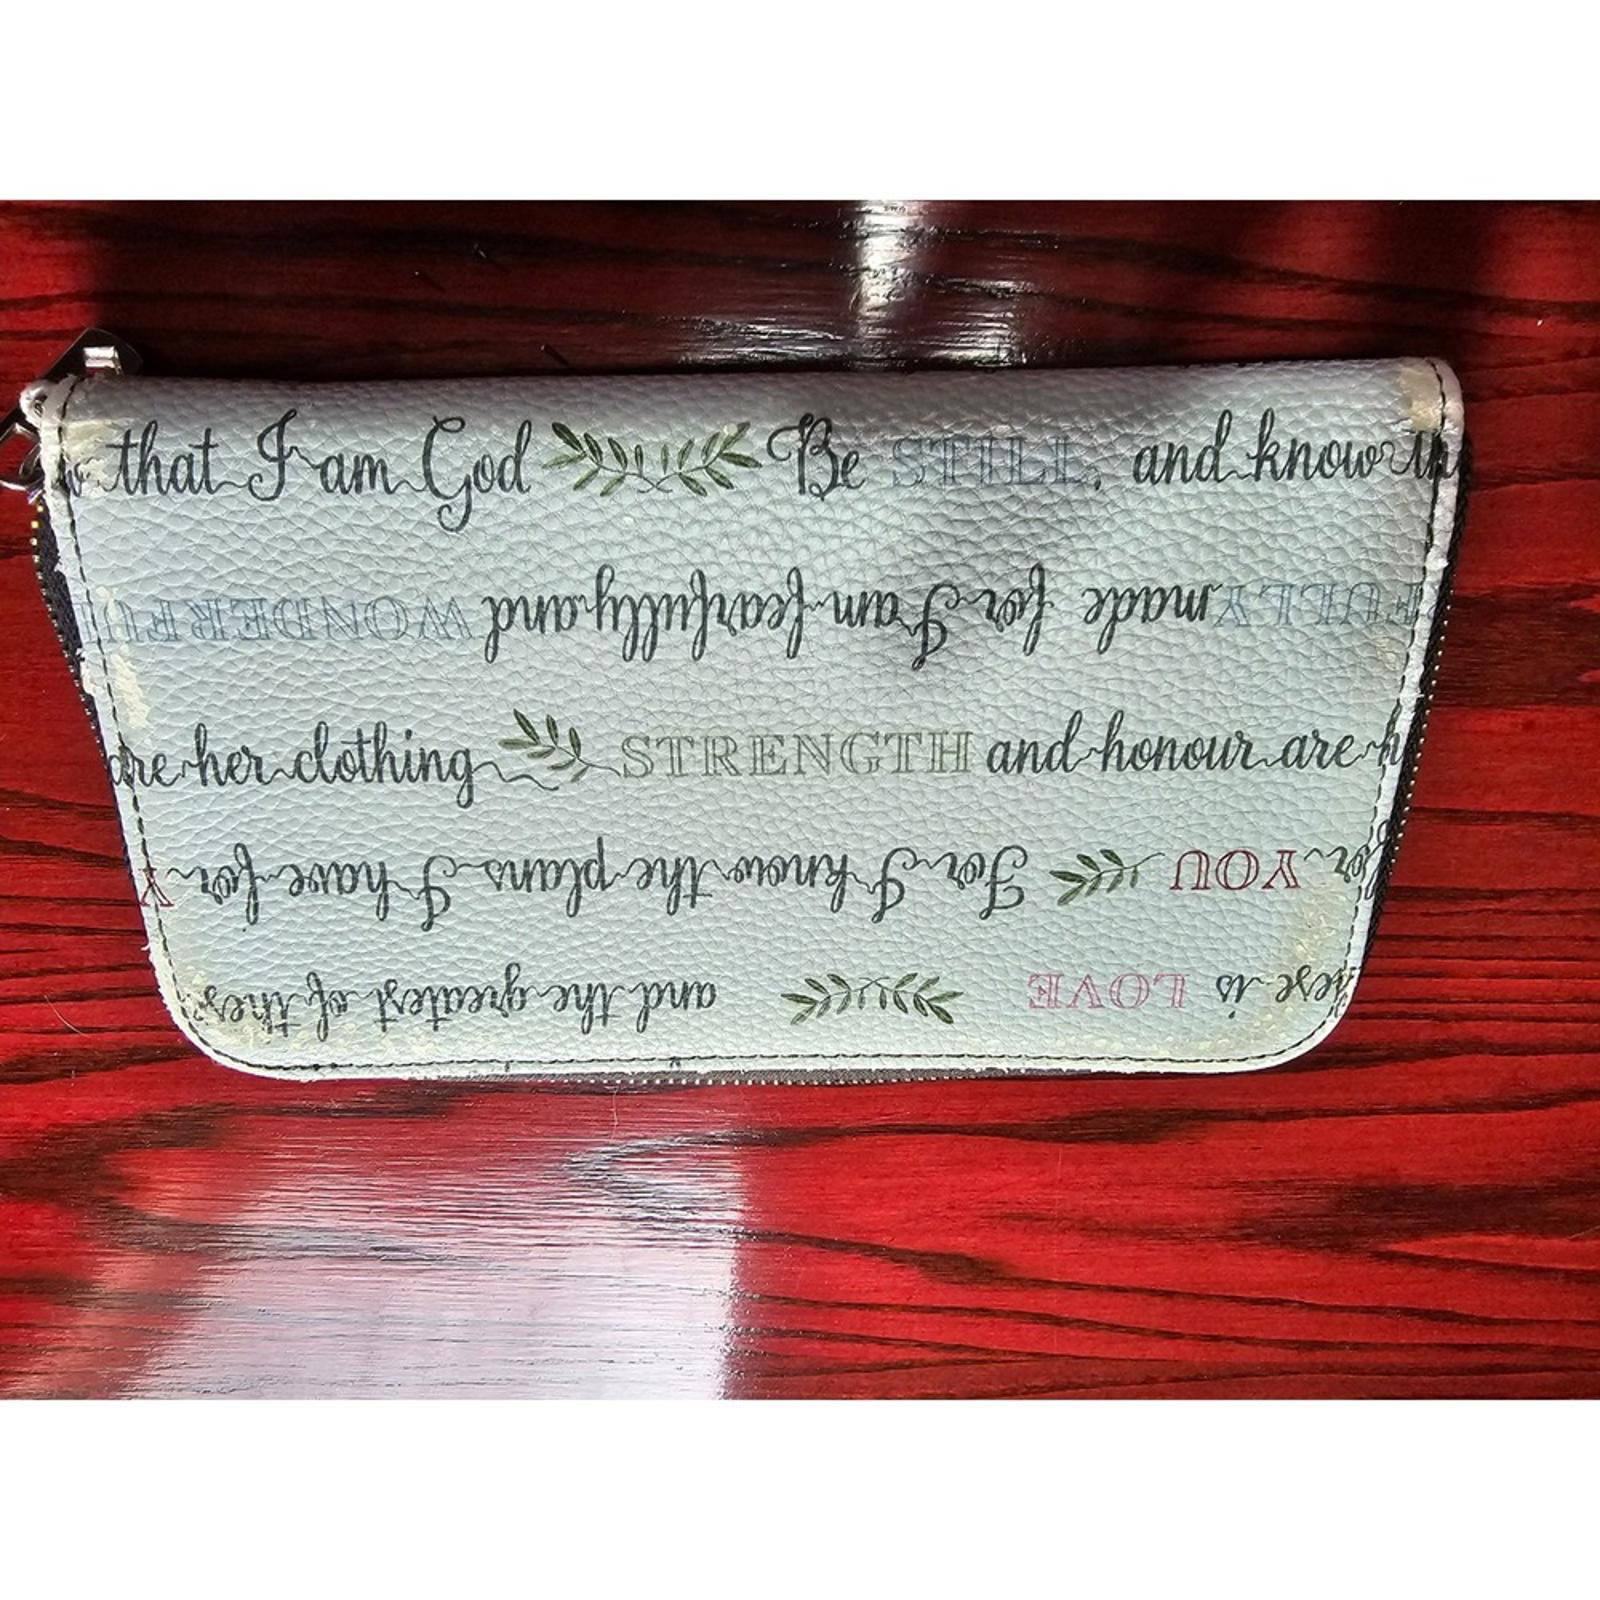 w that I am God Be STILL, and know th
FULLY made for I am fearfully and WONDERFU
are her clothing STRENGTH and honour are h
for YOU For I know the plans I have for Y
hese is LOVE and the greatest of thes